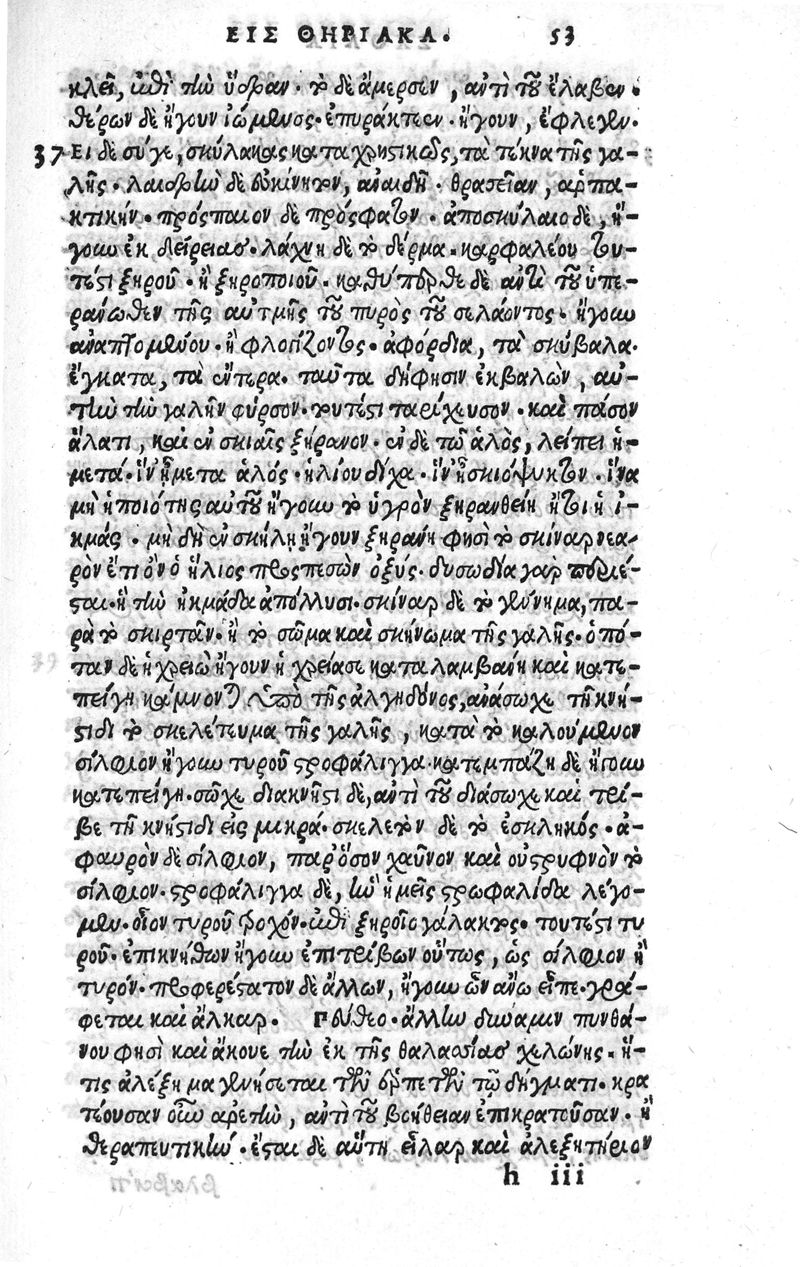 ΕΙΣ ΘΗΡΙΑΚΑ. 53
κλεῖ, ἐπὶ τὴν ὕδραν· τὸ δὲ ἄμερσεν, ἀντὶ τοῦ ἔλαβεν.
θέρων δὲ ἤγουν ἰώμενος· ἐπυράκτεεν· ἤγουν, ἔφλεγεν.
37 Εἰ δὲ σύγε, σκύλακας καταχρηστικῶς, τὰ τέκνα τῆς γα-
λῆς· λαιδρὴν δὲ εὐκίνητον, ἀναιδῆ· θρασεῖαν, ἁρπα-
κτικήν· πρόσπαιον δὲ πρόσφατον· ἀποσκύλαιο δὲ, ἤ-
γουν ἐκδείρειας· λάχνη δὲ τὸ δέρμα· καρφαλέου του-
τέστι ξηροῦ· ἢ ξηροποιοῦ· καθύπερθε δὲ ἀντὶ τοῦ ὑπε-
ράνωθεν τῆς αὐτμῆς τοῦ πυρὸς τοῦ σελάοντος· ἤγουν
ἀναπτομένου· ἢ φλογίζοντος· ἀφόρδια, τὰ σκύβαλα·
ἔγκατα, τὰ ἔντερα· ταῦτα δή φησιν ἐκβαλὼν, αὐ-
τὴν τὴν γαλῆν φύρσον· τουτέστι ταρίχευσον· καὶ πάσον
ἅλατι, καὶ ἐν σκιαῖς ξήρανον· ἐν δὲ τῷ ἁλὸς, λείπει ἡ
μετά· ἵν' ᾖ μετὰ ἁλός· ἡλίου δίχα· ἵν' ᾖ σκιόψυκτον· ἵνα
μὴ ἡ ποιότης αὐτοῦ ἤγουν τὸ ὑγρὸν ξηρανθείη ἤτοι ἡ ἰ-
κμάς· μὴ δὴ ἐνσκήλῃ ἤγουν ξηράνῃ φησὶ τὸ σκίναρ νεα-
ρὸν ἔτι ὂν ὁ ἥλιος προσπεσὼν ὀξύς· δυσωδία γὰρ
ται· ἢ τὴν ἠκμάδα ἀπόλλυσι· σκίναρ δὲ τὸ γέννημα, πα-
ρὰ τὸ σκιρτᾶν· ἢ τὸ σῶμα καὶ σκήνωμα τῆς γαλῆς· ὁπό-
ταν δὲ ἡ χρειὼ ἤγουν ἡ χρεία σε καταλαμβάνῃ καὶ κατε-
πείγῃ κάμνοντα ὑπὸ τῆς ἀλγηδόνος, ἀνάσωχε τῇ κνή-
στιδι τὸ σκελέτευμα τῆς γαλῆς, κατὰ τὸ καλούμενον
σίλφιον ἤγουν τυροῦ στροφάλιγγα· κατεμπάζῃ δὲ ἤγουν
κατεπείγῃ· σῶχε διακνῆστι δὲ, ἀντὶ τοῦ διάσωχε καὶ τρί-
βε τῇ κνήστιδι εἰς μικρά· σκελετὸν δὲ τὸ ἐσκληκός· ἀ-
φαυρὸν δὲ σίλφιον, παρόσον χαῦνον καὶ οὐ στρυφνὸν τὸ
σίλφιον· στροφάλιγγα δὲ, ἣν ἡμεῖς στρωφαλίδα λέγο-
μεν· οἷον τυροῦ τροχόν· ἐπὶ ξηροῖο γάλακτος· τουτέστι τυ
ροῦ· ἐπικνήθων ἤγουν ἐπιτρίβων οὕτως, ὡς σίλφιον ἢ
τυρόν· προφερέστατον δὲ ἄλλων, ἤγουν ὧν ἄνω εἶπε· γρά-
φεται καὶ ἄλκαρ. Πεύθεο· ἄλλην δύναμιν πυνθά-
νου φησὶ καὶ ἄκουε τὴν ἐκ τῆς θαλασσίας χελώνης· ἥ-
τις ἀλέξημα γενήσεται τῶν ἑρπετῶν τῷ δήγματι· κρα
τέουσαν οὖν ἀρετὴν, ἀντὶ τοῦ βοήθειαν ἐπικρατοῦσαν· ἢ
θεραπευτικήν· ἔσται δὲ αὕτη εἶλαρ καὶ ἀλεξητήριον
h iii